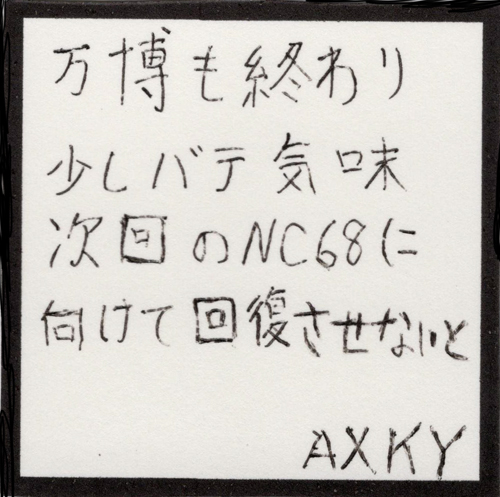 万博も終わり
少しバテ気味
次回のNC68に
向けて回復させないと
AXKY